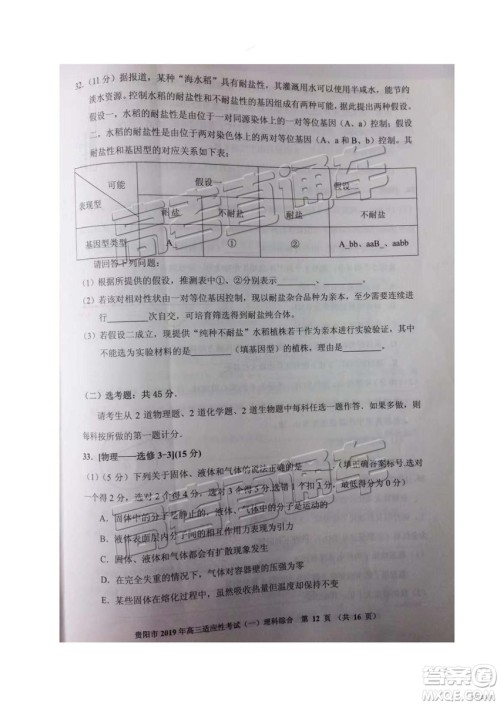 32. (11 分) 据报道，某种“海水稻”具有耐盐性，其灌溉用水可以使用半咸水，能节约
淡水资源。控制水稻的耐盐性和不耐盐性的基因组成有两种可能，提出两种假设。
假设一，水稻的耐盐性是由位于一对同源染色体上的一对等位基因（A、a）控制；假设
二，水稻的耐盐性是由位于两对染色体上的两对等位基因（A、a 和 B、b）控制。其
耐盐性和基因型的对应关系如下表：
可能 假设一 假设二
表现型 耐盐 不耐盐 耐盐 不耐盐
基因型类型 A_ ① ② A_bb、aaB_、aabb
请回答下列问题：
（1）根据所提供的假设，推测表中①②分别表示________、________。
（2）若该对相对性状由一对等位基因控制，现以耐盐杂合品种为亲本，至少需要连续进
行________次自交，可培育筛选得到耐盐纯合体。
（3）若假设二成立，现提供“纯种不耐盐”水稻植株若干作为亲本进行实验验证，其中
不能选为实验材料的是________（填基因型）的植株，理由是________。
（二）选考题：共 45 分。
请考生从 2 道物理题、2 道化学题、2 道生物题中每科任选一题作答。如果多做，则
每科按所做的第一题计分。
33. [物理——选修 3-3](15 分)
（1）（5 分）下列关于固体、液体和气体的说法正确的是________（填正确答案标号.选对
一个得 2 分，选对 2 个得 4 分，选对 3 个得 5 分，每选错 1 个扣 3 分，最低得分为 0 分）
A．固体中的分子是静止不动的
B．液体表面层中分子间的相互作用表现为引力
C．液体、固体和气体都会有扩散现象发生
D．在完全失重的情况下，气体对容器壁的压强为零
E．某些固体在熔化过程中，虽然吸收热量但温度却不变
贵阳市 2019 年高三适应性考试（一）理科综合 第 12 页 （共 16 页）
高考直通车
高考直通车